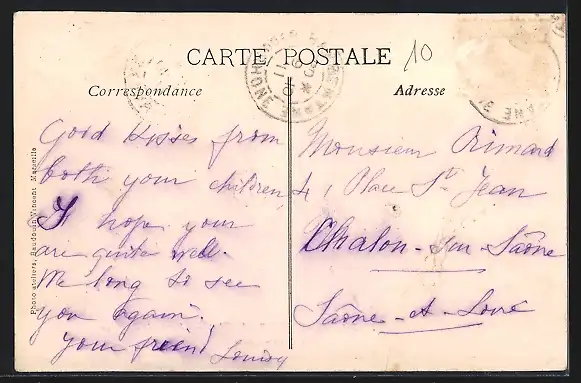 CARTE POSTALE
10
Correspondance
Adresse
Good Kisses from
both your children
I hope your
are quite well.
We long to see
you again.
your friend
Louisy
Monsieur Rimard
4, Place St Jean
Chalon-sur-Saône
Saône-et-Loire
Photo ateliers, Baudouin Vincent Marseille